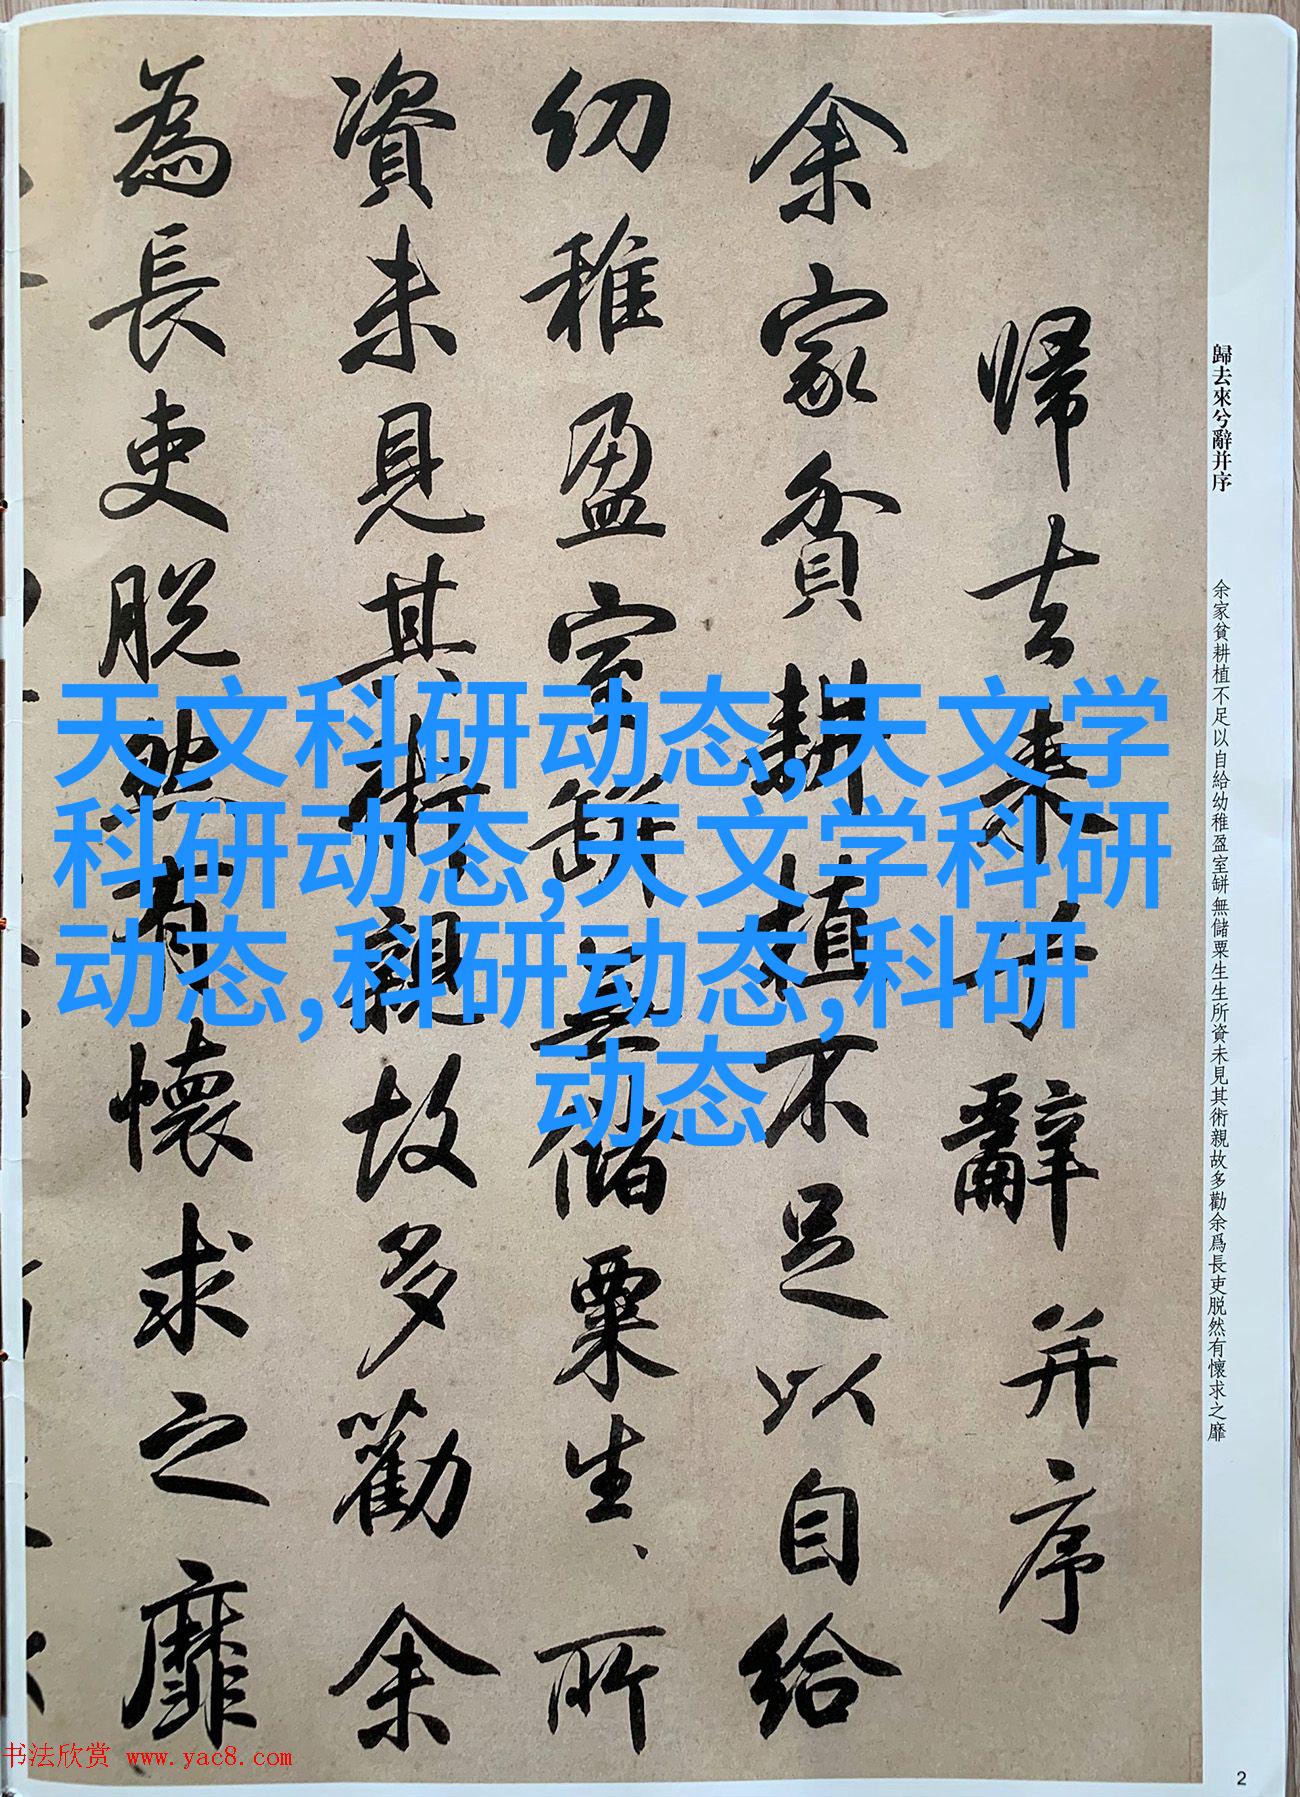 歸去來兮辭并序
余家貧耕植不足以自給幼稚盈室缾無儲粟生生所資未見其術親故多勸余爲長吏脱然有懷求之靡
帰去来兮辭并序
余家貧耕植不足以自給
幼稚盈室缾無儲粟生、所
資未見其術親故多勸余
為長吏脱然有懷求之靡
天文科研动态,天文学
科研动态,天文学科研
动态,科研动态,科研
动态
书法欣赏 www.yac8.com
2